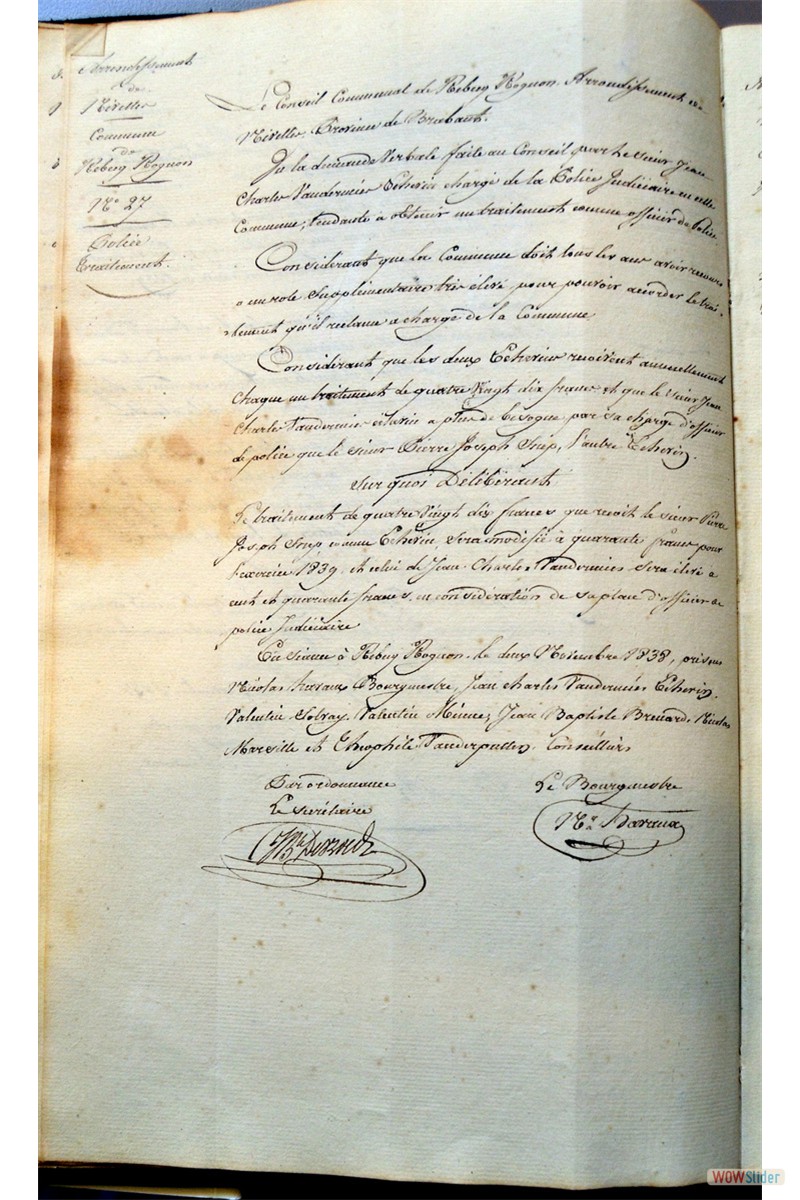 Arrondissement
de
Nivelles
Commune
de
Rebecq Rognon
N° 27
Police
Traitement.
Le Conseil Communal de Rebecq Rognon Arrondissement de
Nivelles, Province de Brabant.
Vu la demande Verbale faite au Conseil par le sieur Jean
Charles Vandermies Echevin chargé de la Police Judiciaire en cette
Commune, tendante à obtenir un traitement comme officier de Police
Considerant que la Commune doit tous les ans avoir recours
a un role supplementaire très élevé pour pouvoir accorder le trai-
tement qu'il reclame a charge de la Commune
Considérant que les deux Echevins recoivent annuellement
chaque un traitement de quatre Vingt dix francs et que le sieur Jean
Charles Vandermies echevin a plus de besogne par sa charge d'officier
de police que le sieur Pierre Joseph l'autre Echevin.
Sur quoi Délibérant
Le traitement de quatre Vingt dix francs que recoit le sieur Pierre
Joseph comme Echevin sera modifié à quarante francs pour
l'exercice 1839 et celui de Jean Charles Vandermies sera élevé a
cent et quarante francs, en considération de sa place d'officier de
police Judiciaire
En séance à Rebecq Rognon le deux Novembre 1838, présens
Nicolas Bourgmestre, Jean Charles Vandermies Echevin,
Valentin Valentin Jean Baptiste Nicolas
Marville et Théophile Conseillers
Par ordonnance
Le secrétaire
Le Bourgmestre